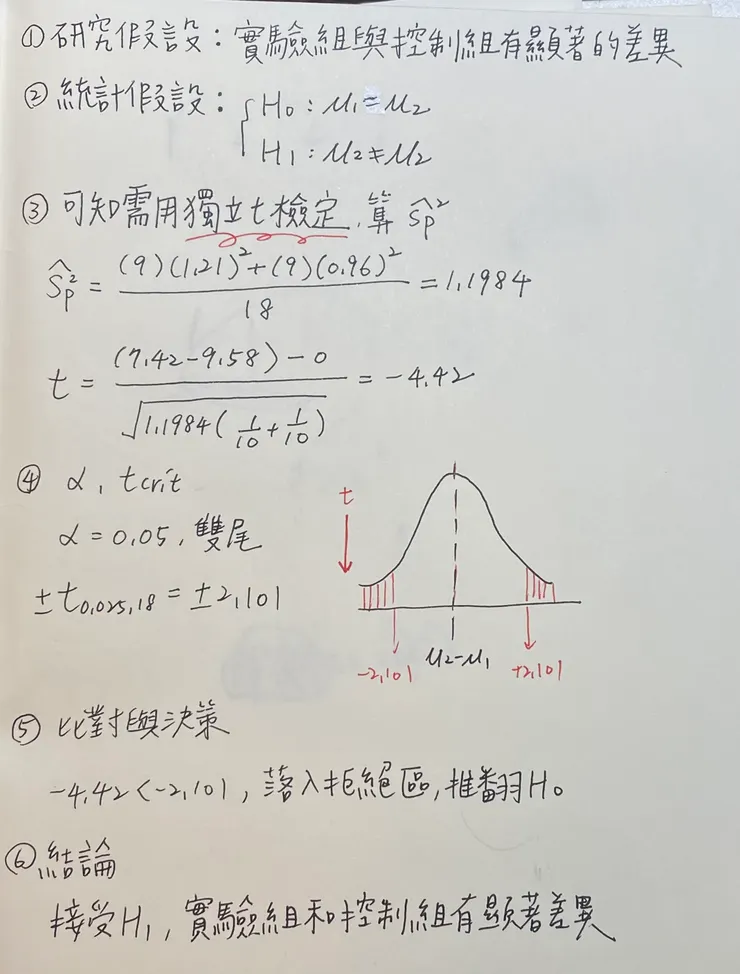 ① 研究假設：實驗組與控制組有顯著的差異
② 統計假設：{ H₀：μ₁=μ₂
H₁：μ₂≠μ₂
③ 可知需用獨立t檢定，算 Ŝp²
Ŝp² = ((9)(1.21)²+(9)(0.96)²)/18 = 1.1984
t = ((7.42-9.58)-0)/√(1.1984(1/10+1/10)) = -4.42
④ α, tcrit
α=0.05, 雙尾
±t0.025,18 = ±2.101
t
-2.101 μ₂-μ₁ +2.101
⑤ 比對與決策
-4.42<-2.101, 落入拒絕區, 推翻H₀
⑥ 結論
接受H₁, 實驗組和控制組有顯著差異